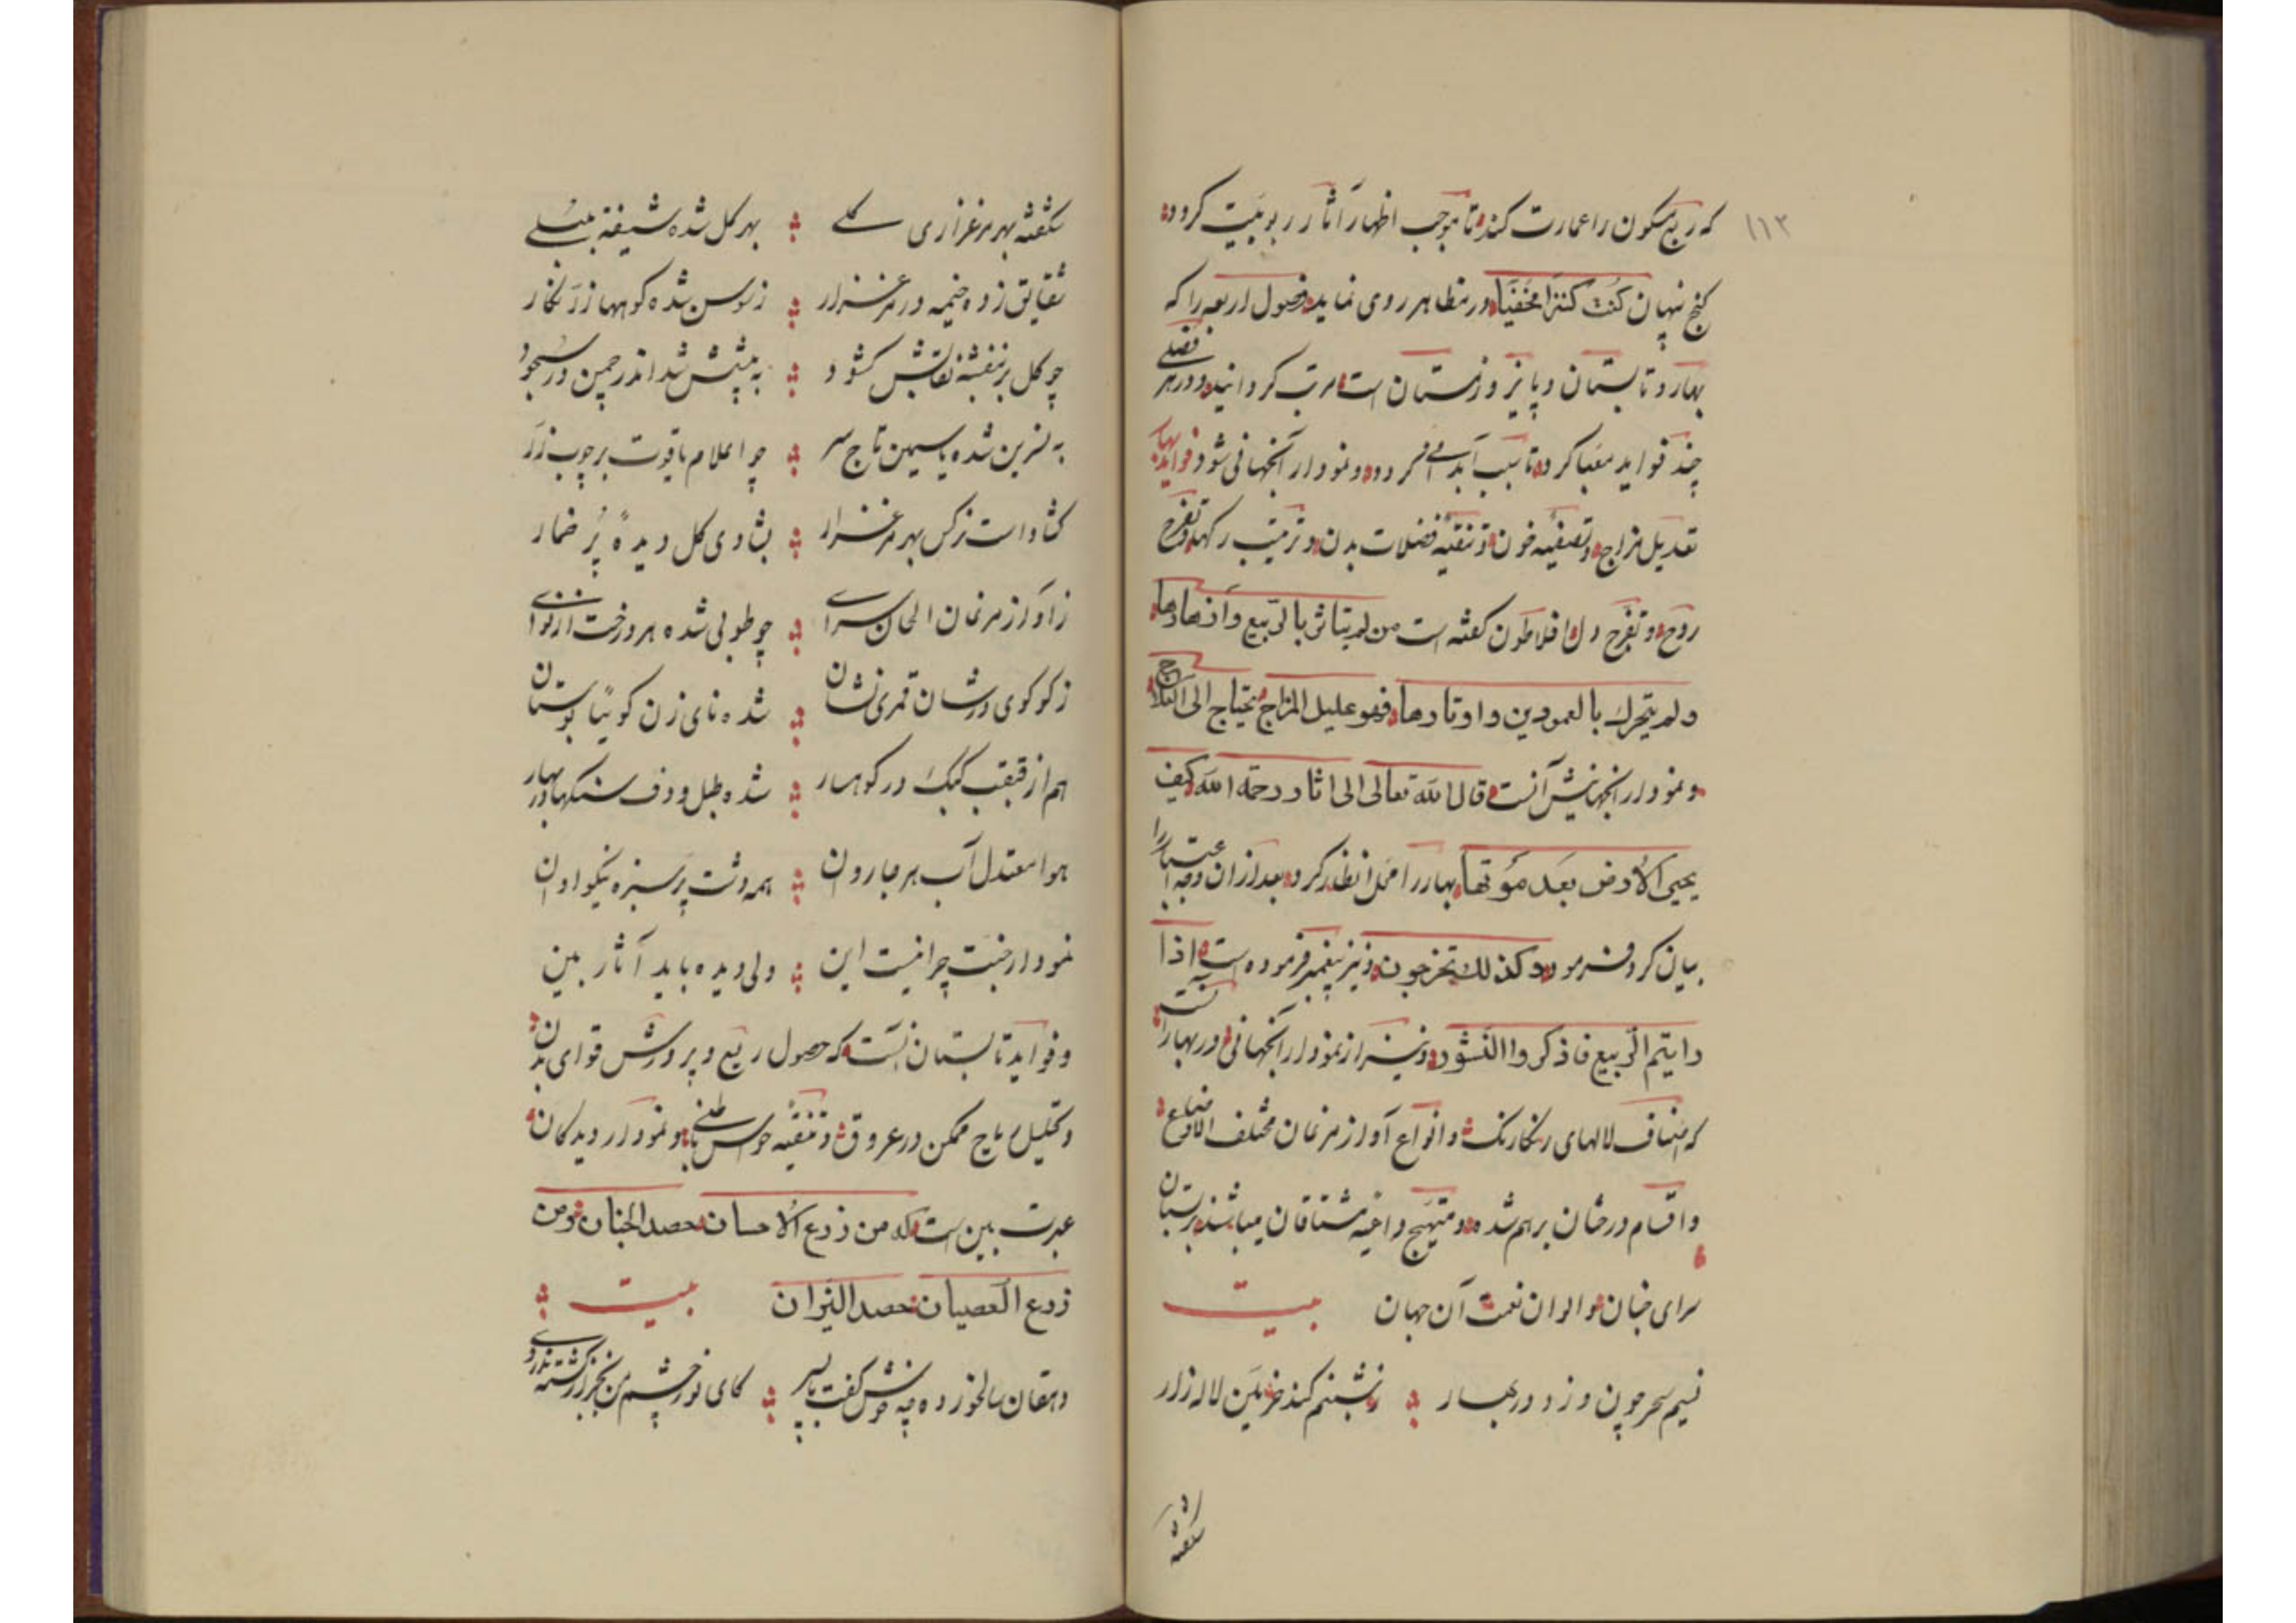 ۱۱۳
که ربع مسکون را عمارت کند تا موجب اظهار آثار ربوبیت کردد
کنج پنهان کُنت کنتزًا مخفیًا در مظاهر روی نماید فصول اربعه را که
بهار و تابستان و پاییز و زمستان است مرتب کردانید و در هر فصلی
چند فواید معبا کرد تا سبب آبد می کردد و نمودار آنجهانی شود فواید بهار
تعدیل مزاج و تصفیهٔ خون و تنقیهٔ فضلات بدن و ترتیب رکها و تفرح
روح و تفرّح دل افلاطون کفته است من لم یتاثر بالرّبیع وازهارها
ولم یتحرك بالعودین واوتارها فهو علیل المزاج یحتاج الی العلاج
و نمودار آنجهانیش آنست قال الله تعالی الی اثار رحمة الله کیف
یحیی الارض بعد موتها بهار را محل انظار کرد بعد از ان وجه اعتبار را
بیان کرد فرمود و کذلك تخرجون و نیز پیغمبر فرموده است اذا
رایتم الرّبیع فاذکروا النشور و نیز از نمودار آنجهانی در بهار آنست
که اصناف لالهای رنکارنك و انواع آواز مرغان مختلف الاوضاع
و اقسام درختان برهم شده و متهیج داعیهٔ مشتاقان میباشند بر بستان
سرای جنان و الوان نعمت آن جهان بیت
نسیم سحر چون وزد در بهار ز شبنم کند خرمن لاله زار
شکفته
شکفته بهر مرغزاری کلی بهر کل شده شیفته بلبلی
شقایق زده خیمه در مرغزار زبوس شده کوهها زرنکار
چو کل بر بنفشه نقابش کشود به پیشش شد اندر چمن در سجود
به نسرین شده یاسیمن تاج سر چو اعلام یاقوت بر چوب زر
کشاد است نرکس بهر مرغزار بشادی کل دیدهٔ پُر خمار
ز آواز مرغان الحان سرای چو طوبی شده هر درخت از نوای
ز کوکوی ورشان قمری نشان شده نای زن کوییا بوستان
هم از قهقهٔ کبك در کوهسار شده طبل و دف سنکها در بهار
هوا معتدل آب هر جا روان همه دشت پر سبزه نیکو اوان
نمودار جنت چرا نیست این ولی دیده باید آثار بین
و فواید تابستان آنست که حصول ریع و پرورش قوای بدن
و تحلیل ریاح ممکن در عروق و تنقیهٔ حواس باطنی بود و نمودار دیدکان
عبرت بین است که من زرع الاحسان حصد الجنان و من
زرع العصیان حصد النیران بیت
دهقان سالخورده چه خوش کفت با پسر کای نور چشم من بجز از کشته ندروی